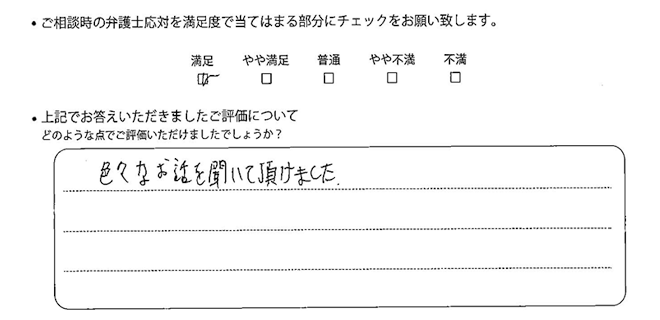 ・ご相談時の弁護士応対を満足度で当てはまる部分にチェックをお願い致します。
満足 やや満足 普通 やや不満 不満
・上記でお答えいただきましたご評価について
どのような点でご評価いただけましたでしょうか？
色々なお話を聞いて頂けました.